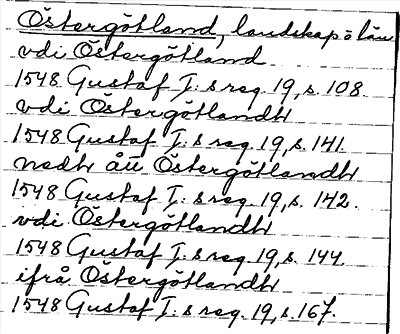 Östergötland, landskap o län
vdi Östergötland
1548 Gustaf I:s reg. 19, s. 108
vdi Östergötlandh
1548 Gustaf I:s reg. 19, s. 141.
nedh ått Östergötlandh
1548 Gustaf I:s reg. 19, s. 142.
vdi Östergötlandh
1548 Gustaf I:s reg. 19, s. 144.
ifrå Östergötlandh
1548 Gustaf I:s reg. 19, s. 167.